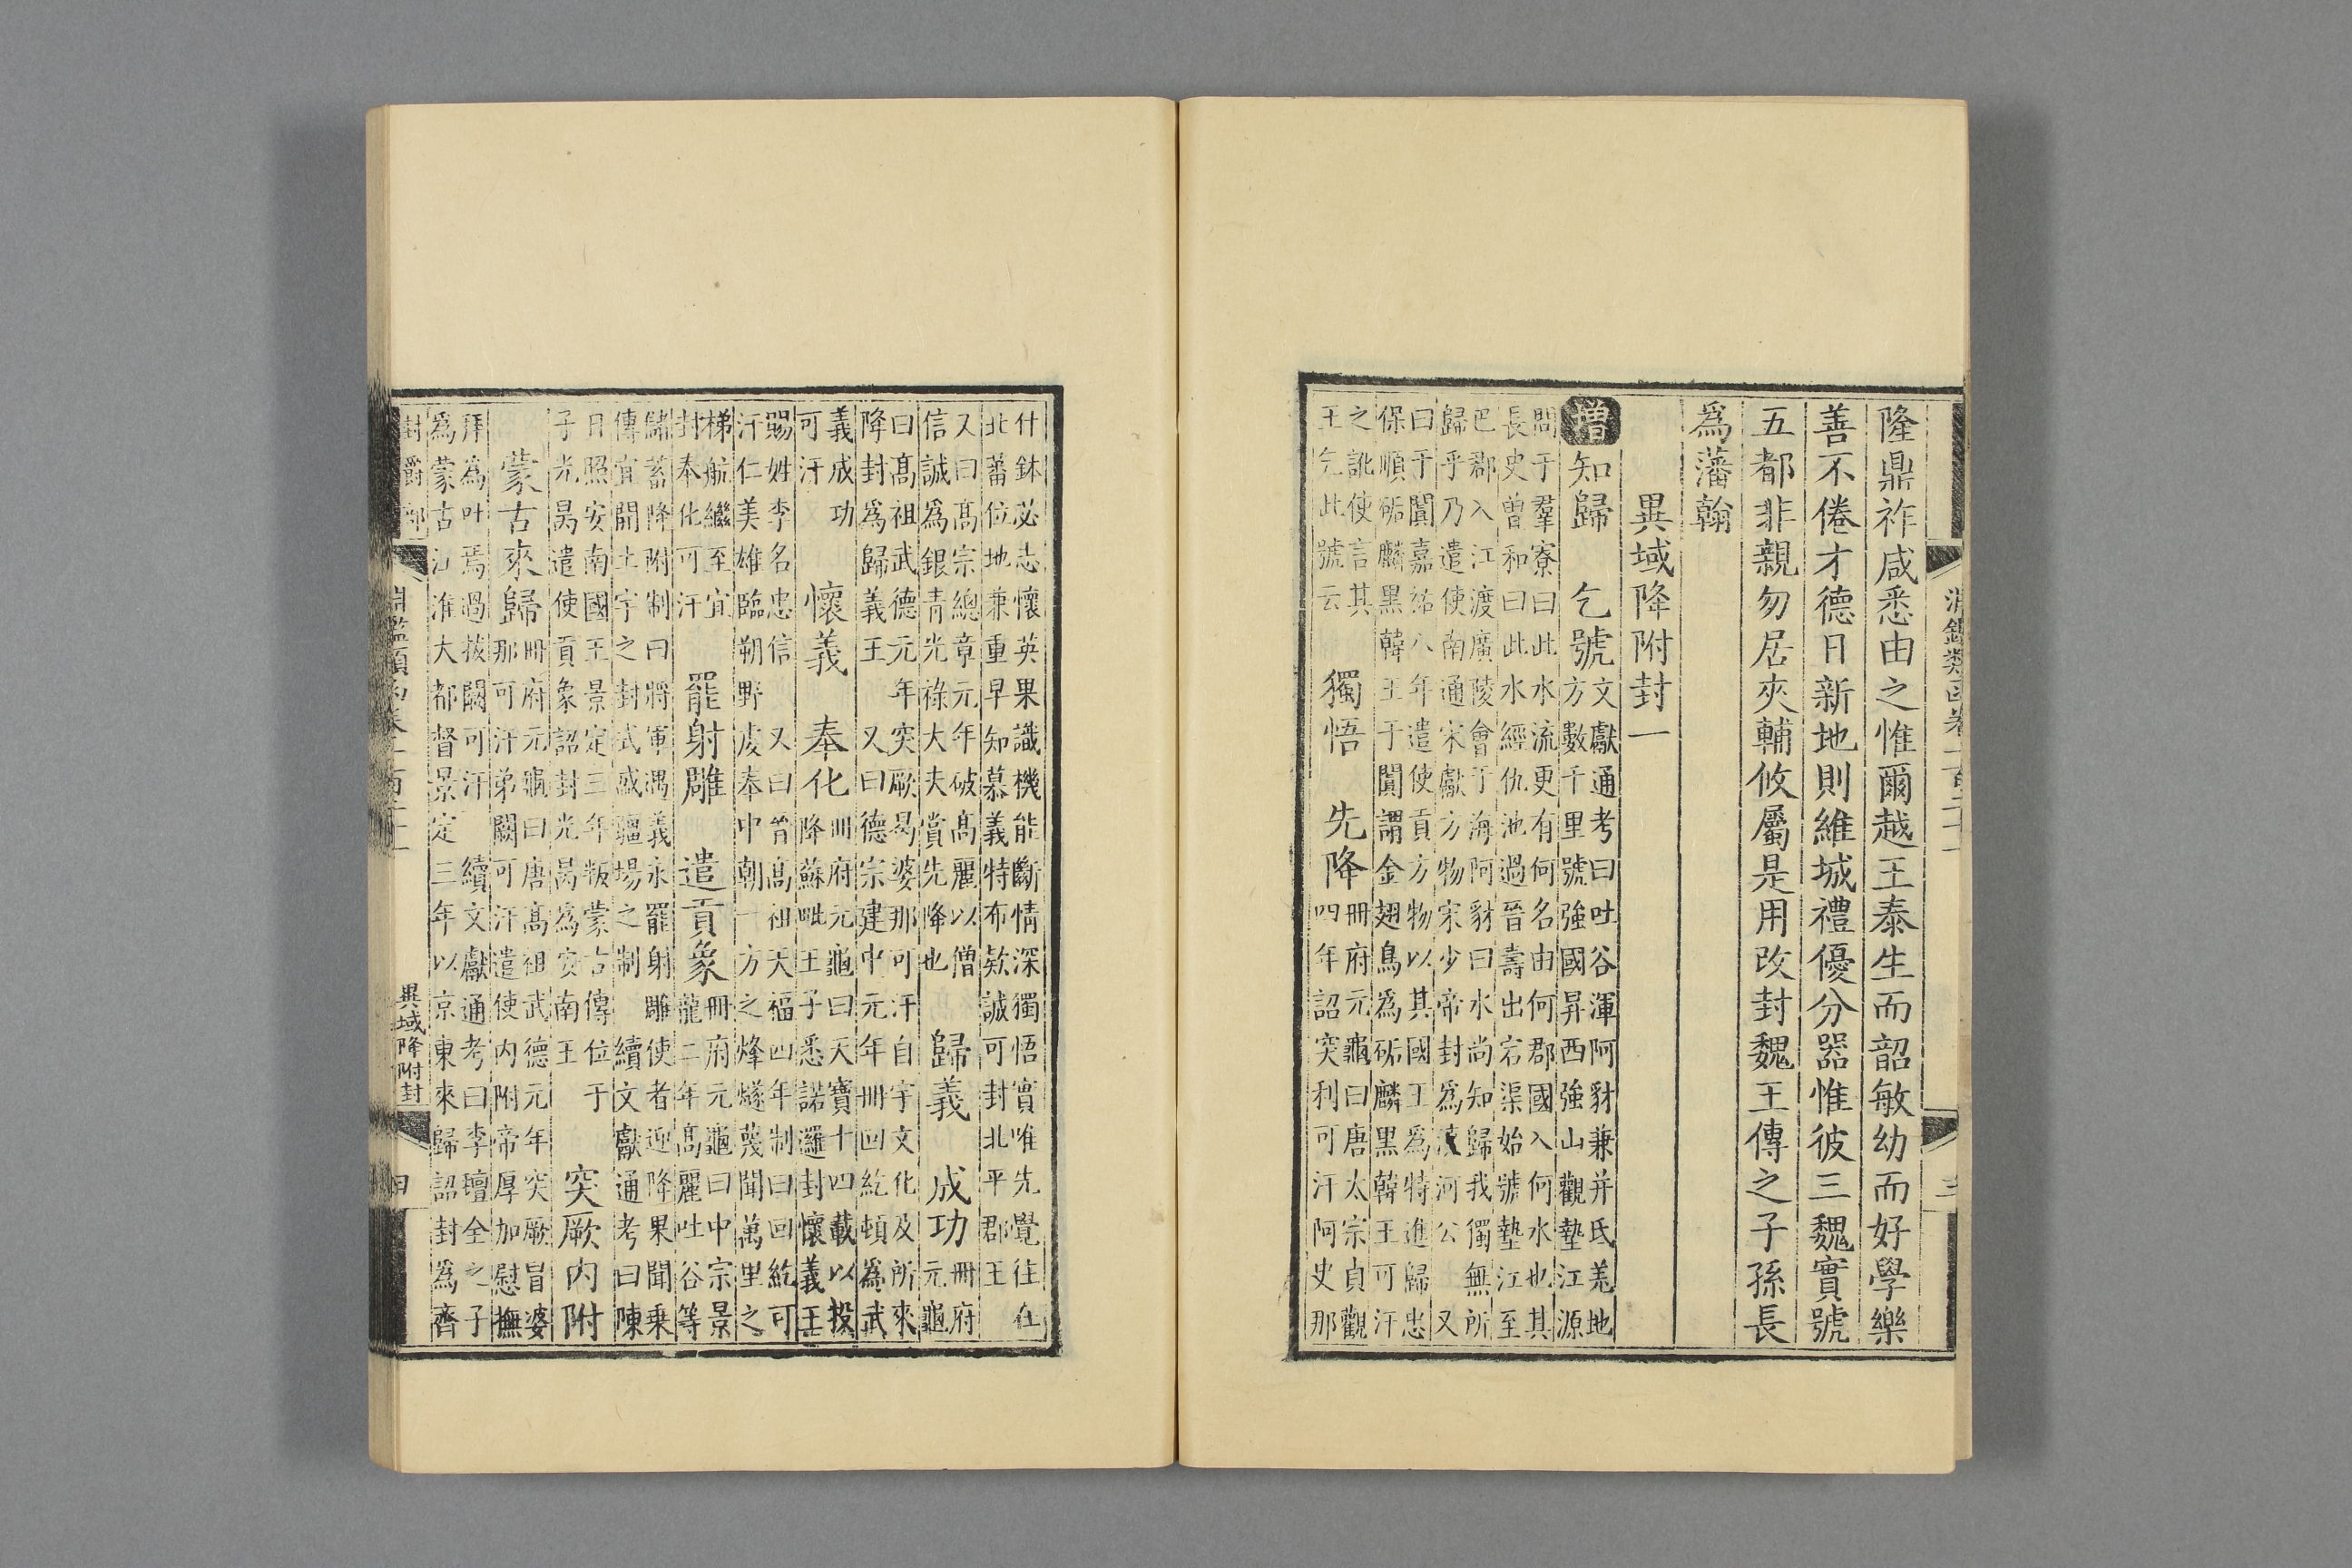 隆鼎祚咸悉由之惟爾越王泰生而韶敏幼而好學樂
善不倦才德日新地則維城禮優分器惟彼三魏實號
五都非親勿居夾輔攸屬是用改封魏王傳之子孫長
爲藩翰
異域降附封一
增知歸　乞號文獻通考曰吐谷渾阿豺兼并氐羌地
方數千里號強國昇西強山觀墊江源
問于羣寮曰此水流更有何名由何郡國入何水也其
長史曾和曰此水經仇池過晉壽出宕渠始號墊江至
巴郡入江渡廣陵會于海阿豺曰水尚知歸我獨無所
歸乎乃遣使南通宋獻方物宋少帝封爲澆河公　又
曰于闐嘉祐八年遣使貢方物以其國王爲特進歸忠
保順䂞麟黑韓王于闐謂金翅鳥爲䂞麟黑韓王可汗
之訛使言其
王乞此號云
獨悟　先降冊府元龜曰唐太宗貞觀
四年詔突利可汗阿史那
什鉢苾志懷英果識機能斷情深獨悟實唯先覺往在
北蕃位地兼重早知慕義特布欵誠可封北平郡王
又曰髙宗總章元年破髙麗以僧
信誠爲銀青光祿大夫賞先降也
歸義　成功冊府
元龜
曰髙祖武德元年突厥曷婆那可汗自宇文化及所來
降封爲歸義王　又曰德宗建中元年冊囘紇頓爲武
義成功
可汗
懷義　奉化冊府元龜曰天寶十四載以投
降蘇毗王子悉諾邏封懷義王
賜姓李名忠信　又曰晉髙祖天福四年制曰回紇可
汗仁美雄臨朔野虔奉中朝一方之烽燧蔑聞萬里之
梯航繼至宜
封奉化可汗
罷射雕　遣貢象冊府元龜曰中宗景
龍二年髙麗吐谷等
續蓄降附制曰將軍遇義永罷射雕使者迎降果聞乗
傳宜開土宇之封式盛疆場之制　續文獻通考曰陳
日照安南國王景定三年叛蒙古傳位于
子光昺遣使貢象詔封光昺為安南王
突厥内附
蒙古來歸冊府元龜曰唐髙祖武德元年突厥冒婆
那可汗弟闕可汗遣使内附帝厚加慰撫
拜為吐焉過拔闕可汗　續文獻通考曰李璮全之子
為蒙古江淮大都督景定三年以京東來歸詔封為齊